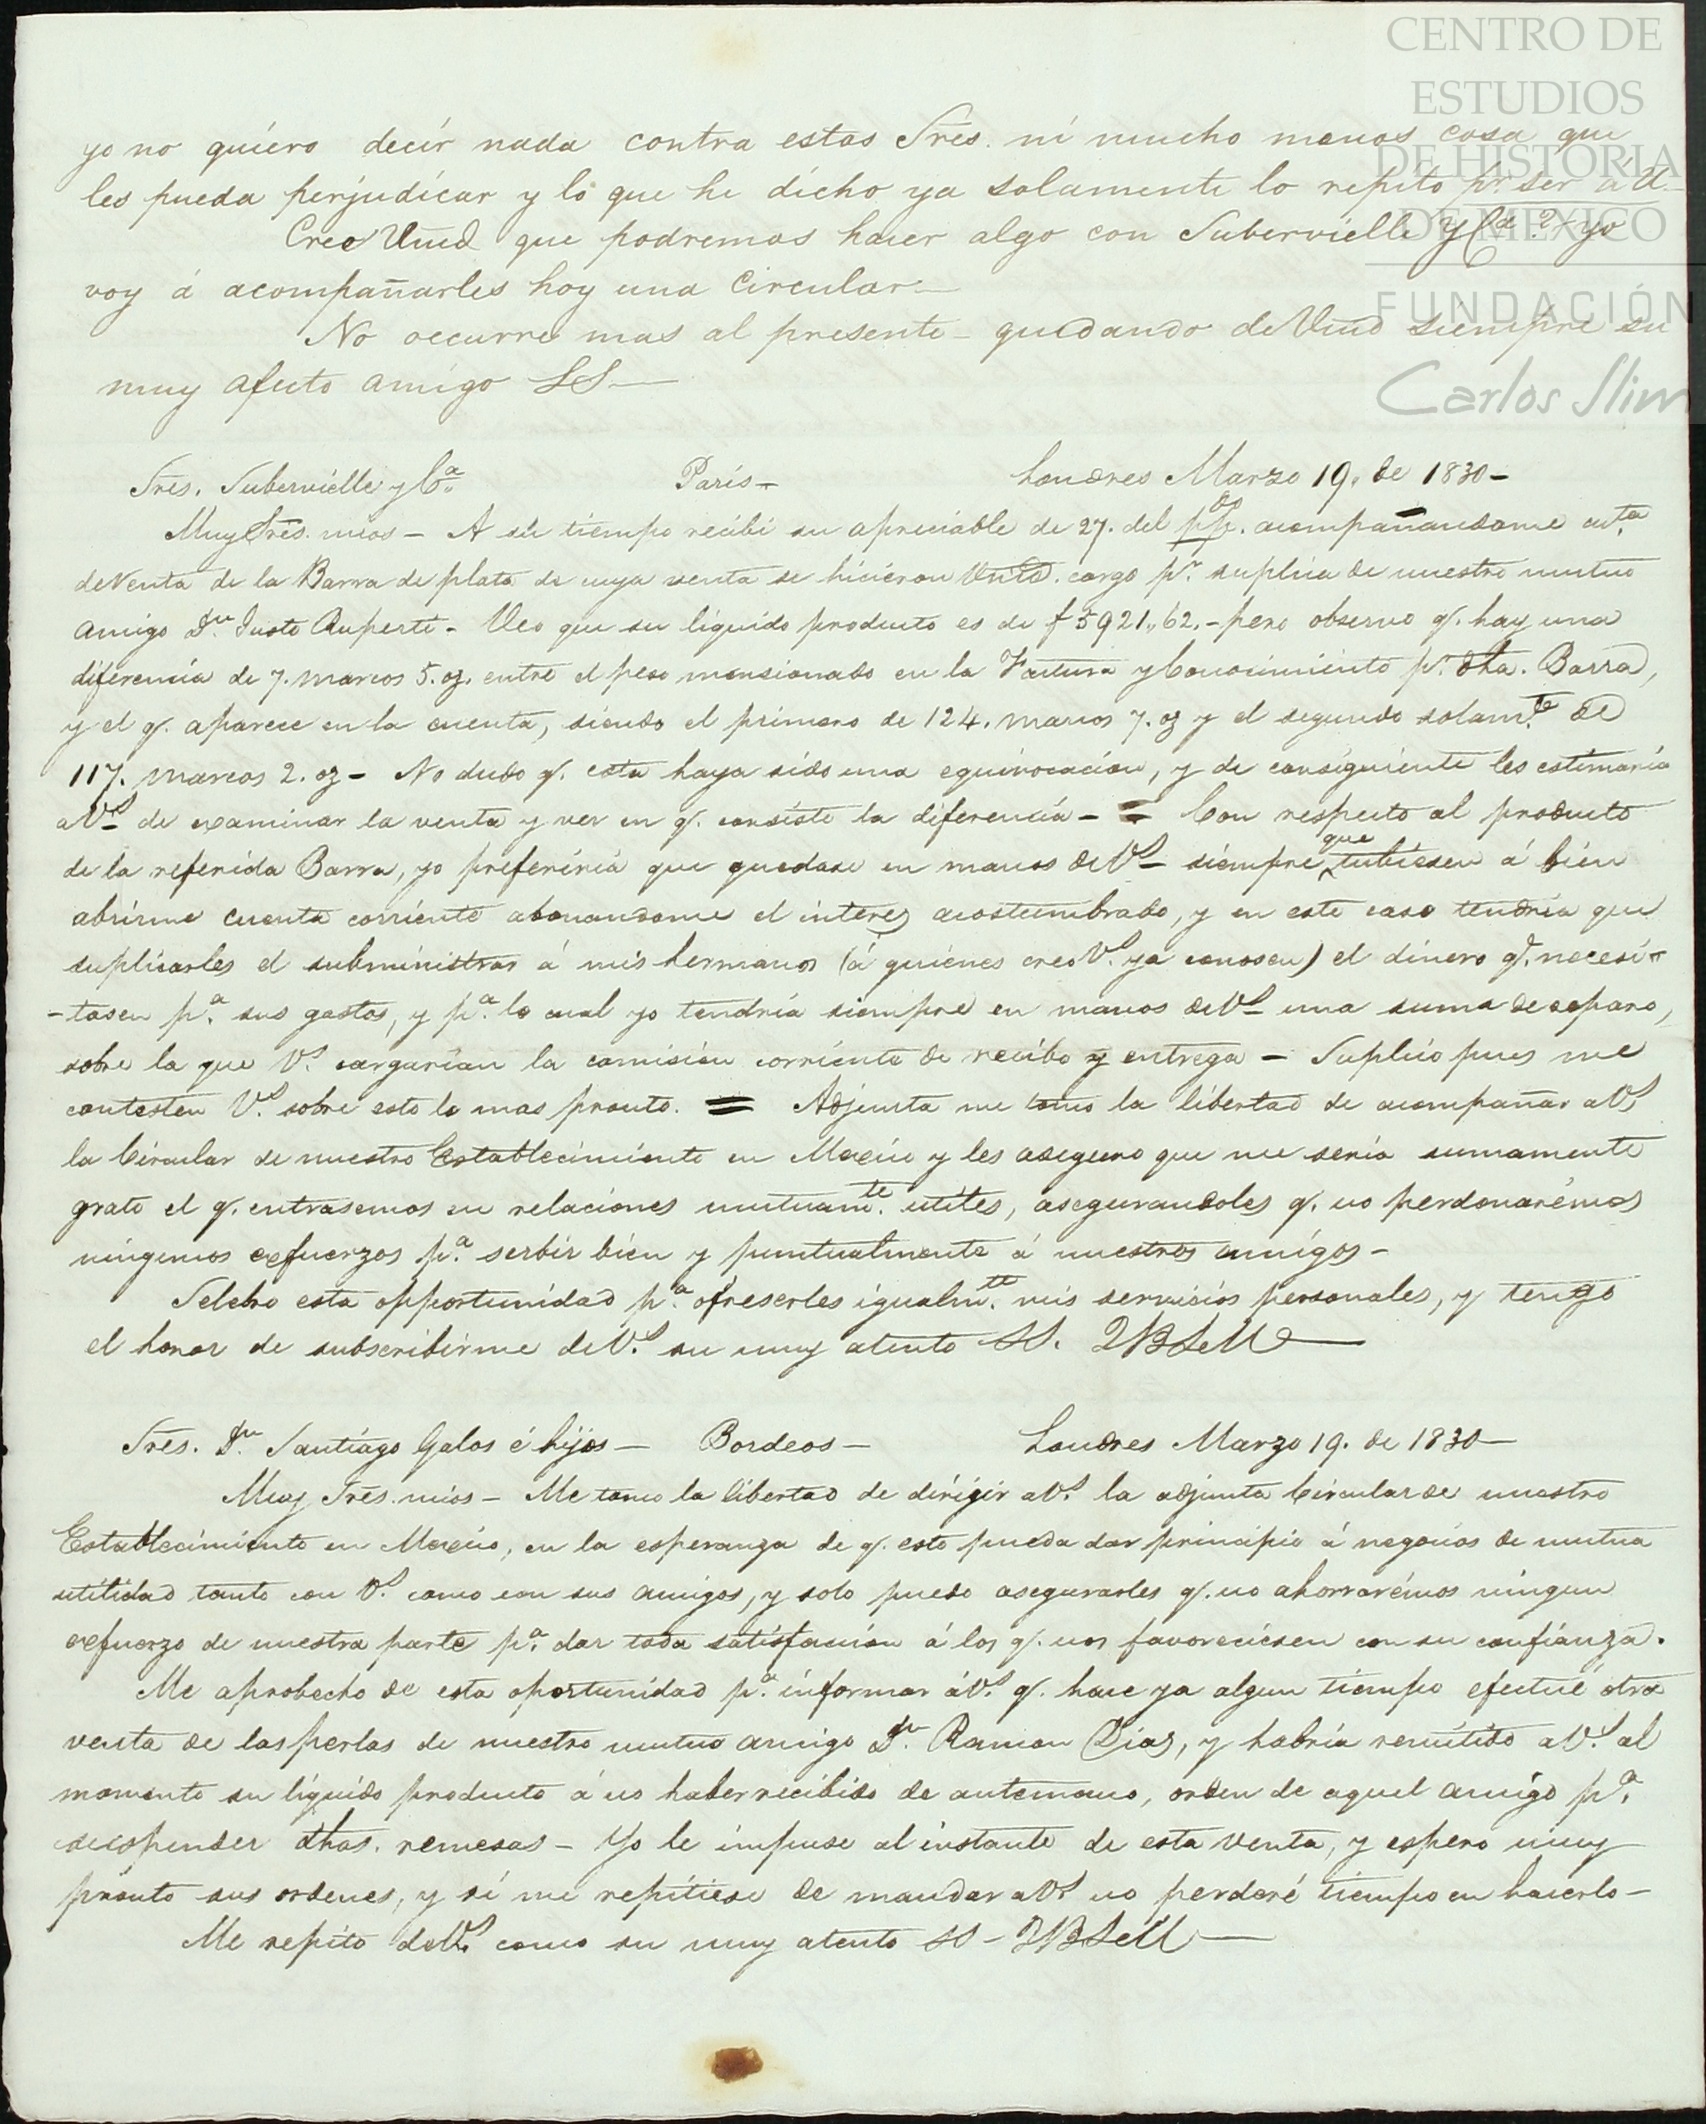 CENTRO DE
ESTUDIOS
DE HISTORIA
DE MÉXICO
FUNDACIÓN
Carlos Slim
yo no quiero decir nada contra estos Sres. ni mucho menos cosa que
les pueda perjudicar y lo que he dicho ya solamente lo repito pr. ser á U—
Creo Vmd que podremos hacer algo con Subervielle y Ca.? — yo
voy á acompañarles hoy una Circular—
No occurre mas al presente — quedando de Vmd siempre su
muy afecto amigo SS—
Sres. Subervielle y Ca. Paris— Londres Marzo 19. de 1830—
Muy Sres. mios — A su tiempo recibi su apreciable de 27. del ppdo. acompañandome cuta.
de Venta de la Barra de plata de cuya venta se hicieron Vmds. cargo pr. suplica de nuestro mutuo
amigo Dn. Justo Ruperti — Veo que su liquido producto es de f 5921,,62. — pero observo q. hay una
diferencia de 7. marcos 5. oz. entre el peso mensionado en la Factura y Conocimiento pr. dha. Barra,
y el q. aparece en la cuenta, siendo el primero de 124. marcos 7. oz y el segundo solamte. de
117. marcos 2. oz — No dudo q. esta haya sido una equivocacion, y de consiguiente les estimaria
a Vs de examinar la venta y ver en q. consiste la diferencia — = Con respecto al producto
de la referida Barra, yo preferiria que quedase en manos de Vs — siempre que tubiesen á bien
abrirme cuenta corriente abonandome el interes acostumbrado, y en este caso tendria que
suplicarles el subministrar á mis hermanos (á quienes creo Vs. ya conosen) el dinero q. necesi-
-tasen pa. sus gastos, y pa. lo cual yo tendria siempre en manos de Vs una suma de reparo,
sobre la que Vs. cargarian la comision corriente de recibo y entrega — Suplico pues me
contesten Vs. sobre esto lo mas pronto. = Adjunta me tomo la libertad de acompañar a Vs
la Circular de nuestro Establecimiento en Mexico y les aseguro que me seria sumamente
grato el q. entrasemos en relaciones mutuamte. utiles, asegurandoles q. no perdonarémos
ningunos esfuerzos pa. serbir bien y puntualmente á nuestros amigos —
Selebro esta opportunidad pa. ofreserles igualmte. mis servisios personales, y tengo
el honor de subscribirme de Vs. su muy atento SS. QBSM—
Sres. Dn. Santiago Galos é hijos — Bordeos — Londres Marzo 19. de 1830—
Muy Sres. mios — Me tomo la libertad de dirigir a Vs. la adjunta Circular de nuestro
Establecimiento en Mexico, en la esperanza de q. esto pueda dar principio á negocios de mutua
utilidad tanto con Vs. como con sus amigos, y solo puedo asegurarles q. no ahorrarémos ningun
esfuerzo de nuestra parte pa. dar toda satisfacion á los q. nos favoreciesen con su confianza.
Me aprobecho de esta oportunidad pa. informar á Vs. q. hace ya algun tiempo efectué otra
venta de las perlas de nuestro mutuo amigo Dn. Ramon Dias, y habria remitido a Vs. al
momento su liquido producto á no haber recibido de antemano, orden de aquel amigo pa.
suspender dhas. remesas — Yo le impuse al instante de esta venta, y espero muy
pronto sus ordenes, y si me repitiese de mandar a Vs no perderé tiempo en hacerlo —
Me repito de Vs. como su muy atento SS — QBSM—